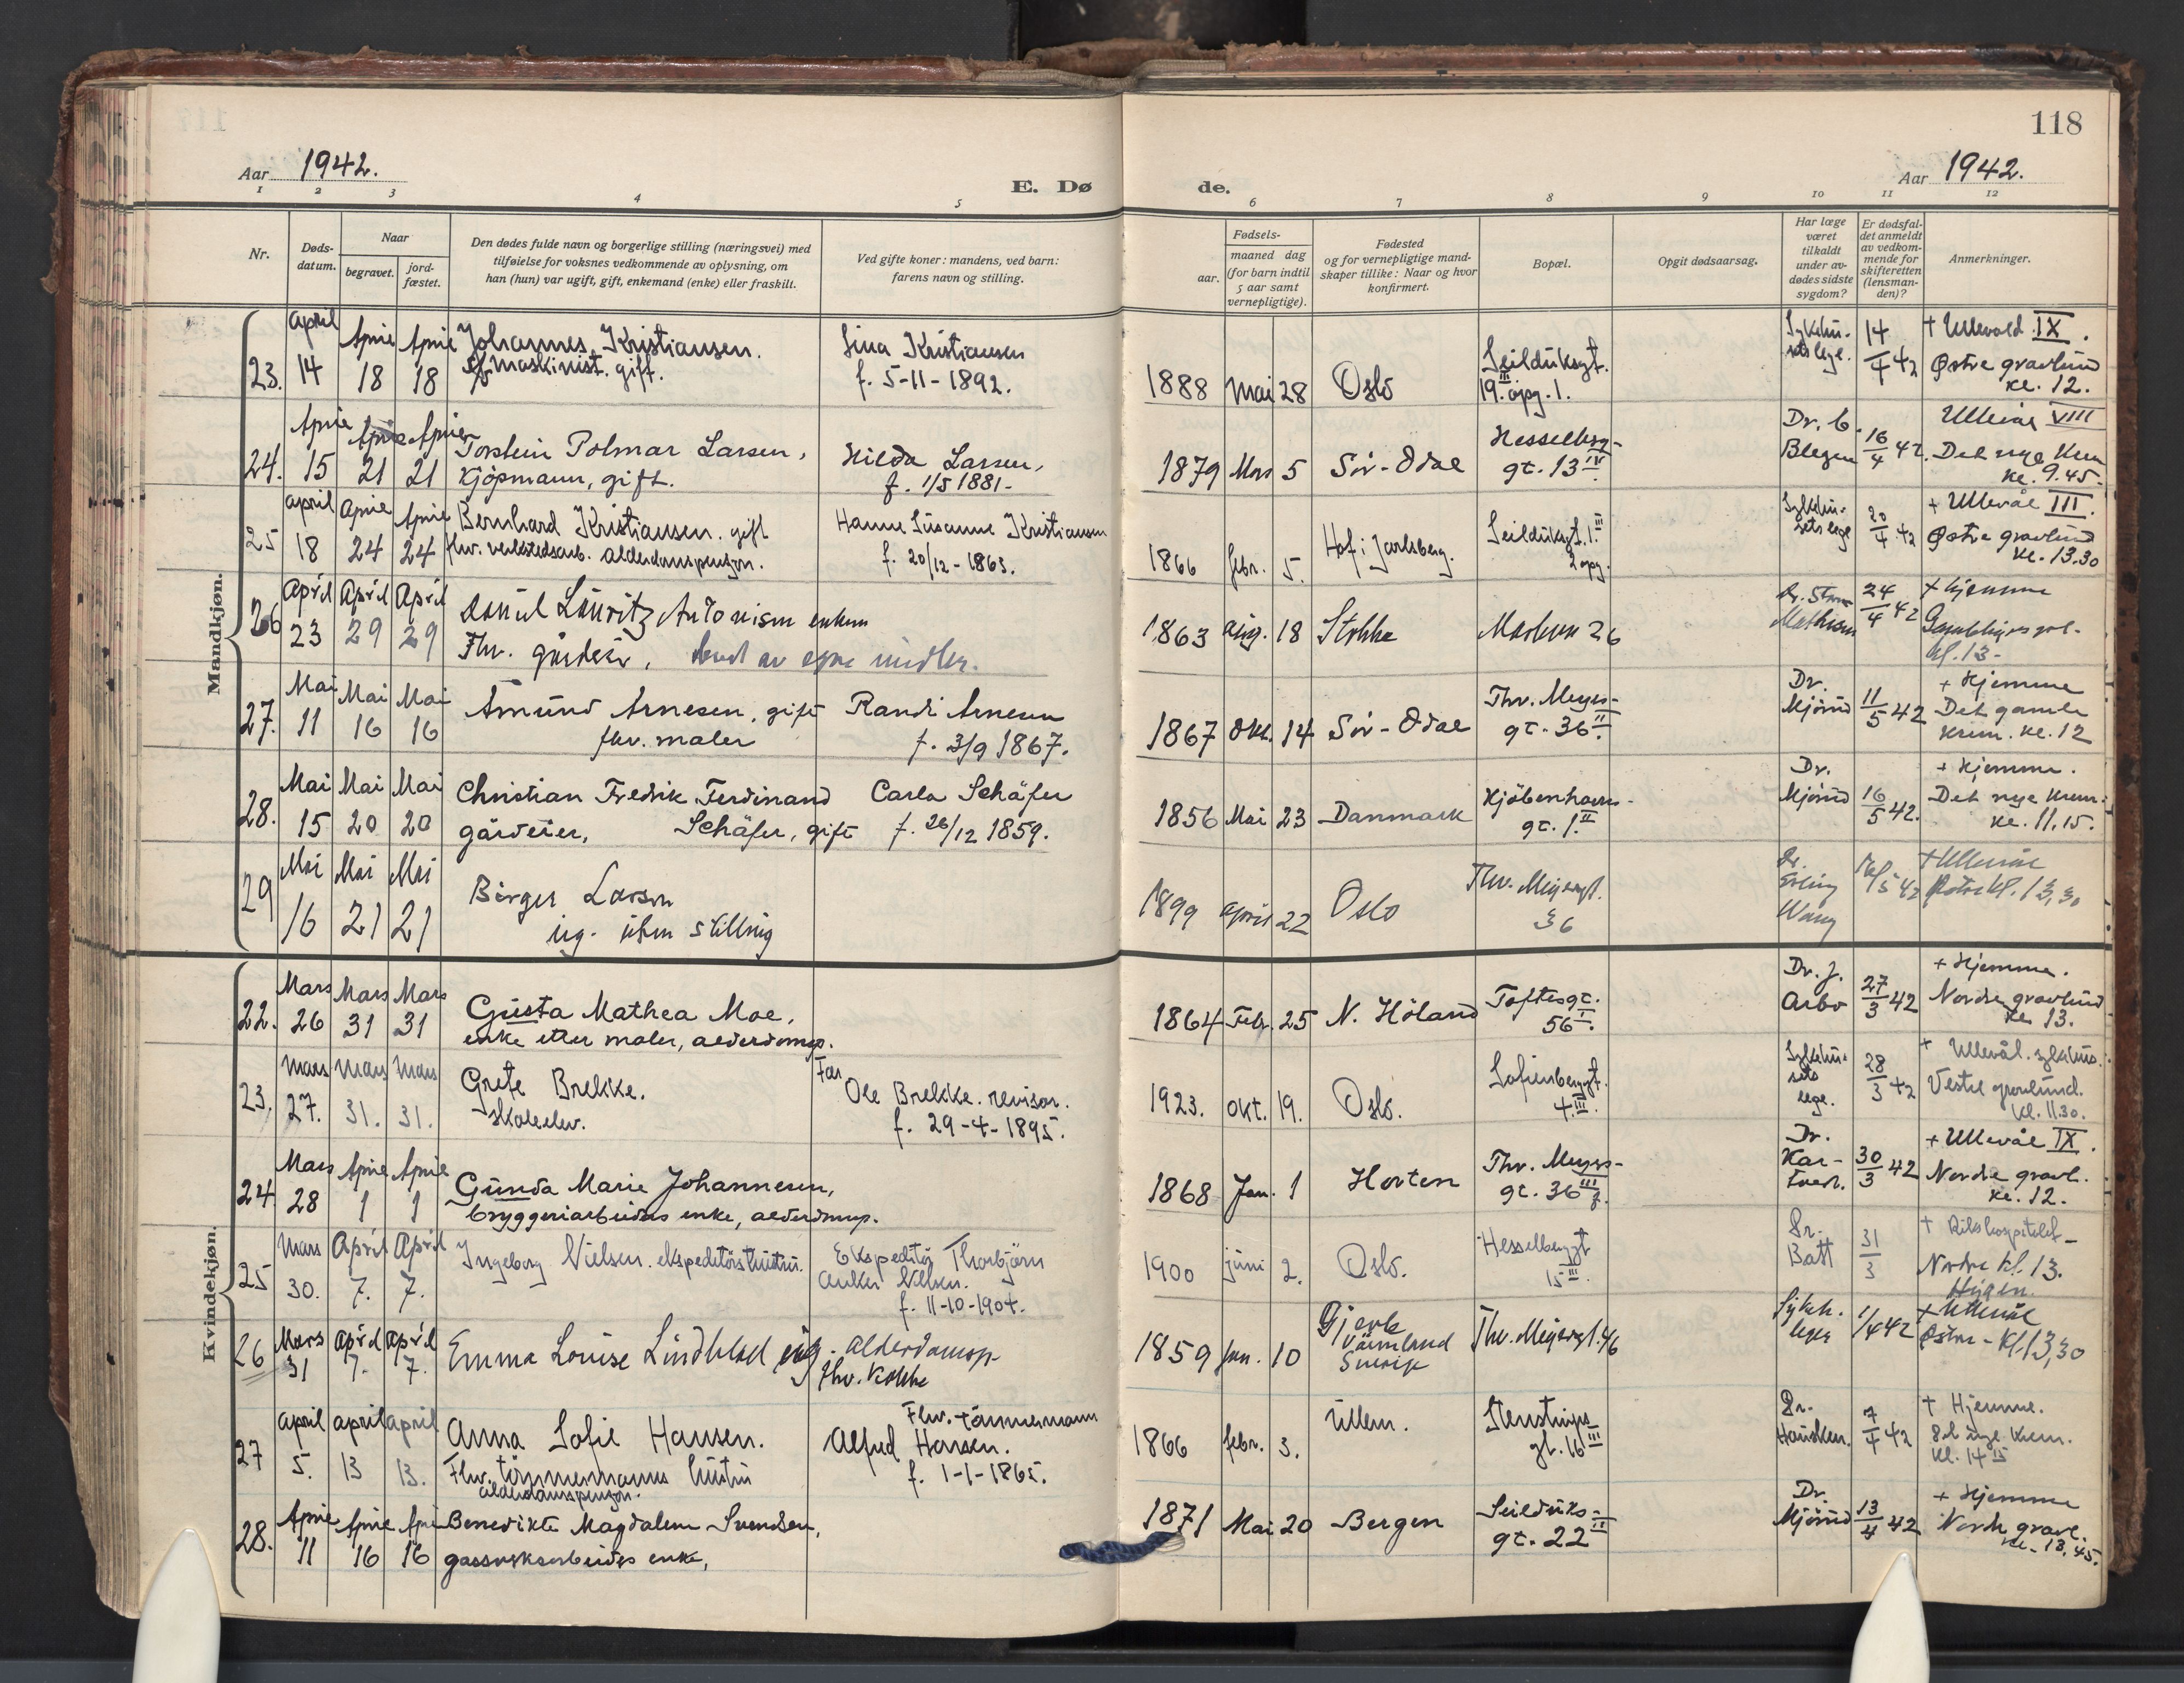 118
Aar 1942.
E. Dø de.
Aar 1942.
1 2 3 4 5 6 7 8 9 10 11 12
Nr.
Døds-
datum.
Naar
begravet.
jord-
fæstet.
Den dødes fulde navn og borgerlige stilling (næringsvei) med
tilføielse for voksnes vedkommende av oplysning, om
han (hun) var ugift, gift, enkemand (enke) eller fraskilt.
Ved gifte koner: mandens, ved barn:
farens navn og stilling.
Fødsels-
aar.
maaned dag
(for barn indtil
5 aar samt
vernepligtige).
Fødested
og for vernepligtige mand-
skaper tillike: Naar og hvor
konfirmert.
Bopæl.
Opgit dødsaarsag.
Har læge
været
tilkaldt
under av-
dødes sidste
sygdom?
Er dødsfal-
det anmeldt
av vedkom-
mende for
skifteretten
(lensman-
den)?
Anmerkninger.
Mandkjøn.
23. April 14 April 18 April 18
Johannes Kristiansen.
maskinist. gift.
Lina Kristiansen
f. 5-11-1892.
1888 Mai 28 Oslo
Seilduksgt.
19. III opg. 1.
Sykehu-
sets lege.
14/4 42
+ Ullevold IX.
Østre gravlund
kl. 12.
24. April 15 April 21 April 21
Torstein Polmar Larsen,
Kjøpmann, gift.
Hilda Larsen,
f. 1/5 1881.
1879 Mars 5 Sör-Odal
Hesselberg-
gt. 13 IV
Dr. C.
Blegen
16/4 42.
Ullevål VIII
Det nye Krem
kl. 9.45.
25 april 18 April 24 April 24
Bernhard Kristiansen. gift
fhv. verkstedsarb. alderdomspensjon.
Hanne Susanne Kristiansen
f. 20/12-1863.
1866 febr. 5. Hof i Jarlsberg.
Seilduksgt. 1. III
2 opg.
Sykehu-
sets lege
20/4 42
+ Ullevål III.
Østre gravlund
kl. 13.30
26 April 23 April 29 April 29
Daniel Lauritz Antonisen enkem
Fhv. gårdeier, levd av egne midler.
1863 aug. 18 Stokke
Markvn 26
24/4 42
+ hjemme
kl. 13-
27. Mai 11 Mai 16 Mai 16
Amund Arnesen, gift
fhv. maler
Randi Arnesen
f. 3/9 1867.
1867 Okt. 14 Sör-Odal
Thv. Meyers-
gt. 36 II.
Dr.
Mjönd
11/5 42
+ Hjemme
Det gamle
krem. kl. 12
28. Mai 15 Mai 20 Mai 20
Christian Fredrik Ferdinand
gårdeier, Schäfer, gift
Carla Schäfer
f. 26/12 1859.
1856 Mai 23 Danmark
Kjöbenhavns-
gt. 1. II
Dr.
Mjönd
16/5 42.
+ Hjemme.
Det nye Krem.
kl. 11.15.
29 Mai 16 Mai 21 Mai 21
Birger Larsen
ug. uten stilling
1899 april 22 Oslo
Thv. Meyersgt.
36
Dr.
Erling
Wang
+ Ullevål
Østre kl. 13,30
Kvindekjøn.
22. Mars 26 Mars 31 Mars 31
Gusta Mathea Moe,
enke etter maler, alderdomsp.
1864 Febr. 25 N. Höland
Toftesgt.
56 I.
Dr. J.
Arbo
27/3 42
+ Hjemme.
Nordre gravlund
kl 13.
23. Mars 27. Mars 31. Mars 31.
Grete Brekke.
skoleelev.
Far
Ole Brekke. revisor.
f. 29-4-1895.
1923. okt. 19. Oslo.
Sofienberggt.
4. III.
Sykehu-
sets
lege.
28/3 42
+ Ullevål. sykehus.
Vestre gravlund.
kl. 11.30.
24 Mars 28 April 1 April 1
Gunda Marie Johannesen,
bryggeriarbeiders enke, alderdomsp.
1868 Jan. 1 Horten
Thv. Meyers-
gt. 36 III
Dr.
Kar-
tvedt.
30/3 42
+ Ullevål IX.
Nordre gravl.
kl. 12.
25 Mars 30. April 7. April 7.
Ingeborg Nielsen. ekspeditörs hustru.
Ekspeditör Thorbjörn
Anker Nielsen.
f. 11-10-1904.
1900 juni 2. Oslo.
Hesselberggt
15 III.
Dr.
Batt
31/3
+ Rikshospitalet
Nordre kl. 13.
26 Mars 31 April 7. April 7.
Emma Louise Lindblad ug. alderdomsp.
fhv. kokke
1859 jan. 10
Värmland
Sverige
Thv. Meyersgt. 46
Sykeh.
lege
1/4 42
+ Ullevål
Østre - Kl. 13,30
27 april 5. april 13 april 13.
Anna Sofie Hansen.
Fhv. tömmermanns hustru
alderdomspensjon.
Fhv. tömmermann
Alfred Hansen.
f. 1-1-1865.
1866 febr. 3. Ullern.
Stenstrups
gt. 16 III
Dr.
Hausken.
7/4 42
+ Hjemme.
Det nye Krem.
kl. 14 15
28. April 11 April 16 April 16
Benedikte Magdalene Svendsen,
gassverksarbeiders enke,
1871 Mai 20 Bergen
Seilduks-
gt. 22 II
Dr.
Mjönd
13/4 42
+ Hjemme
Nordre gravl.
kl. 13.45.